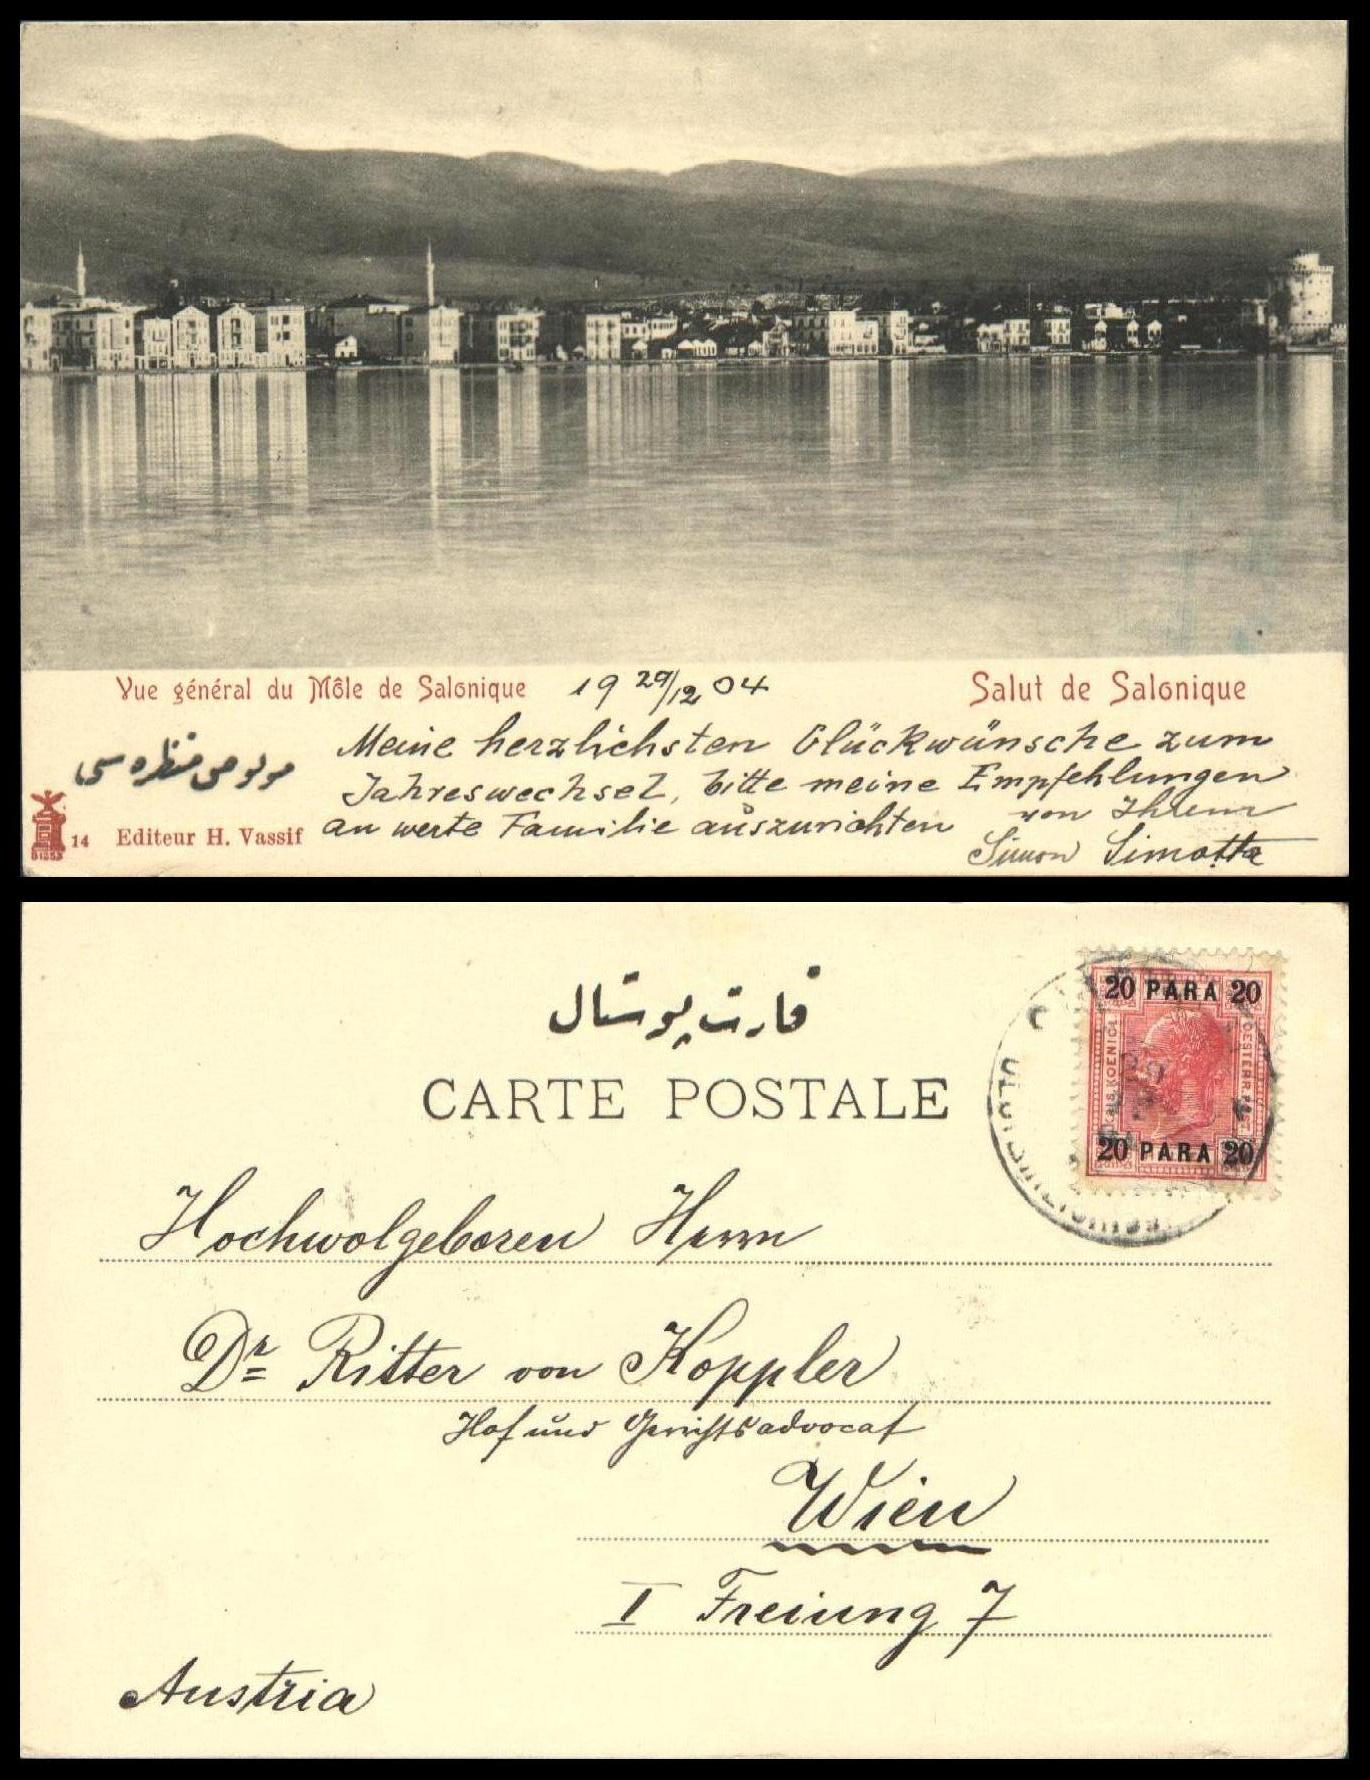 Vue général du Môle de Salonique
19 29/12 04
Salut de Salonique
Meine herzlichsten Glückwünsche zum
Jahreswechsel, bitte meine Empfehlungen
an werte Familie auszurichten von Ihrem
Simon Simotta
منظره سى
14 Editeur H. Vassif
قارت پوستال
CARTE POSTALE
20 PARA 20
20 PARA 20
Hochwolgeboren Herrn
Dr Ritter von Koppler
Hof und Gerichtsadvocat
Wien
I Freiung 7
Austria